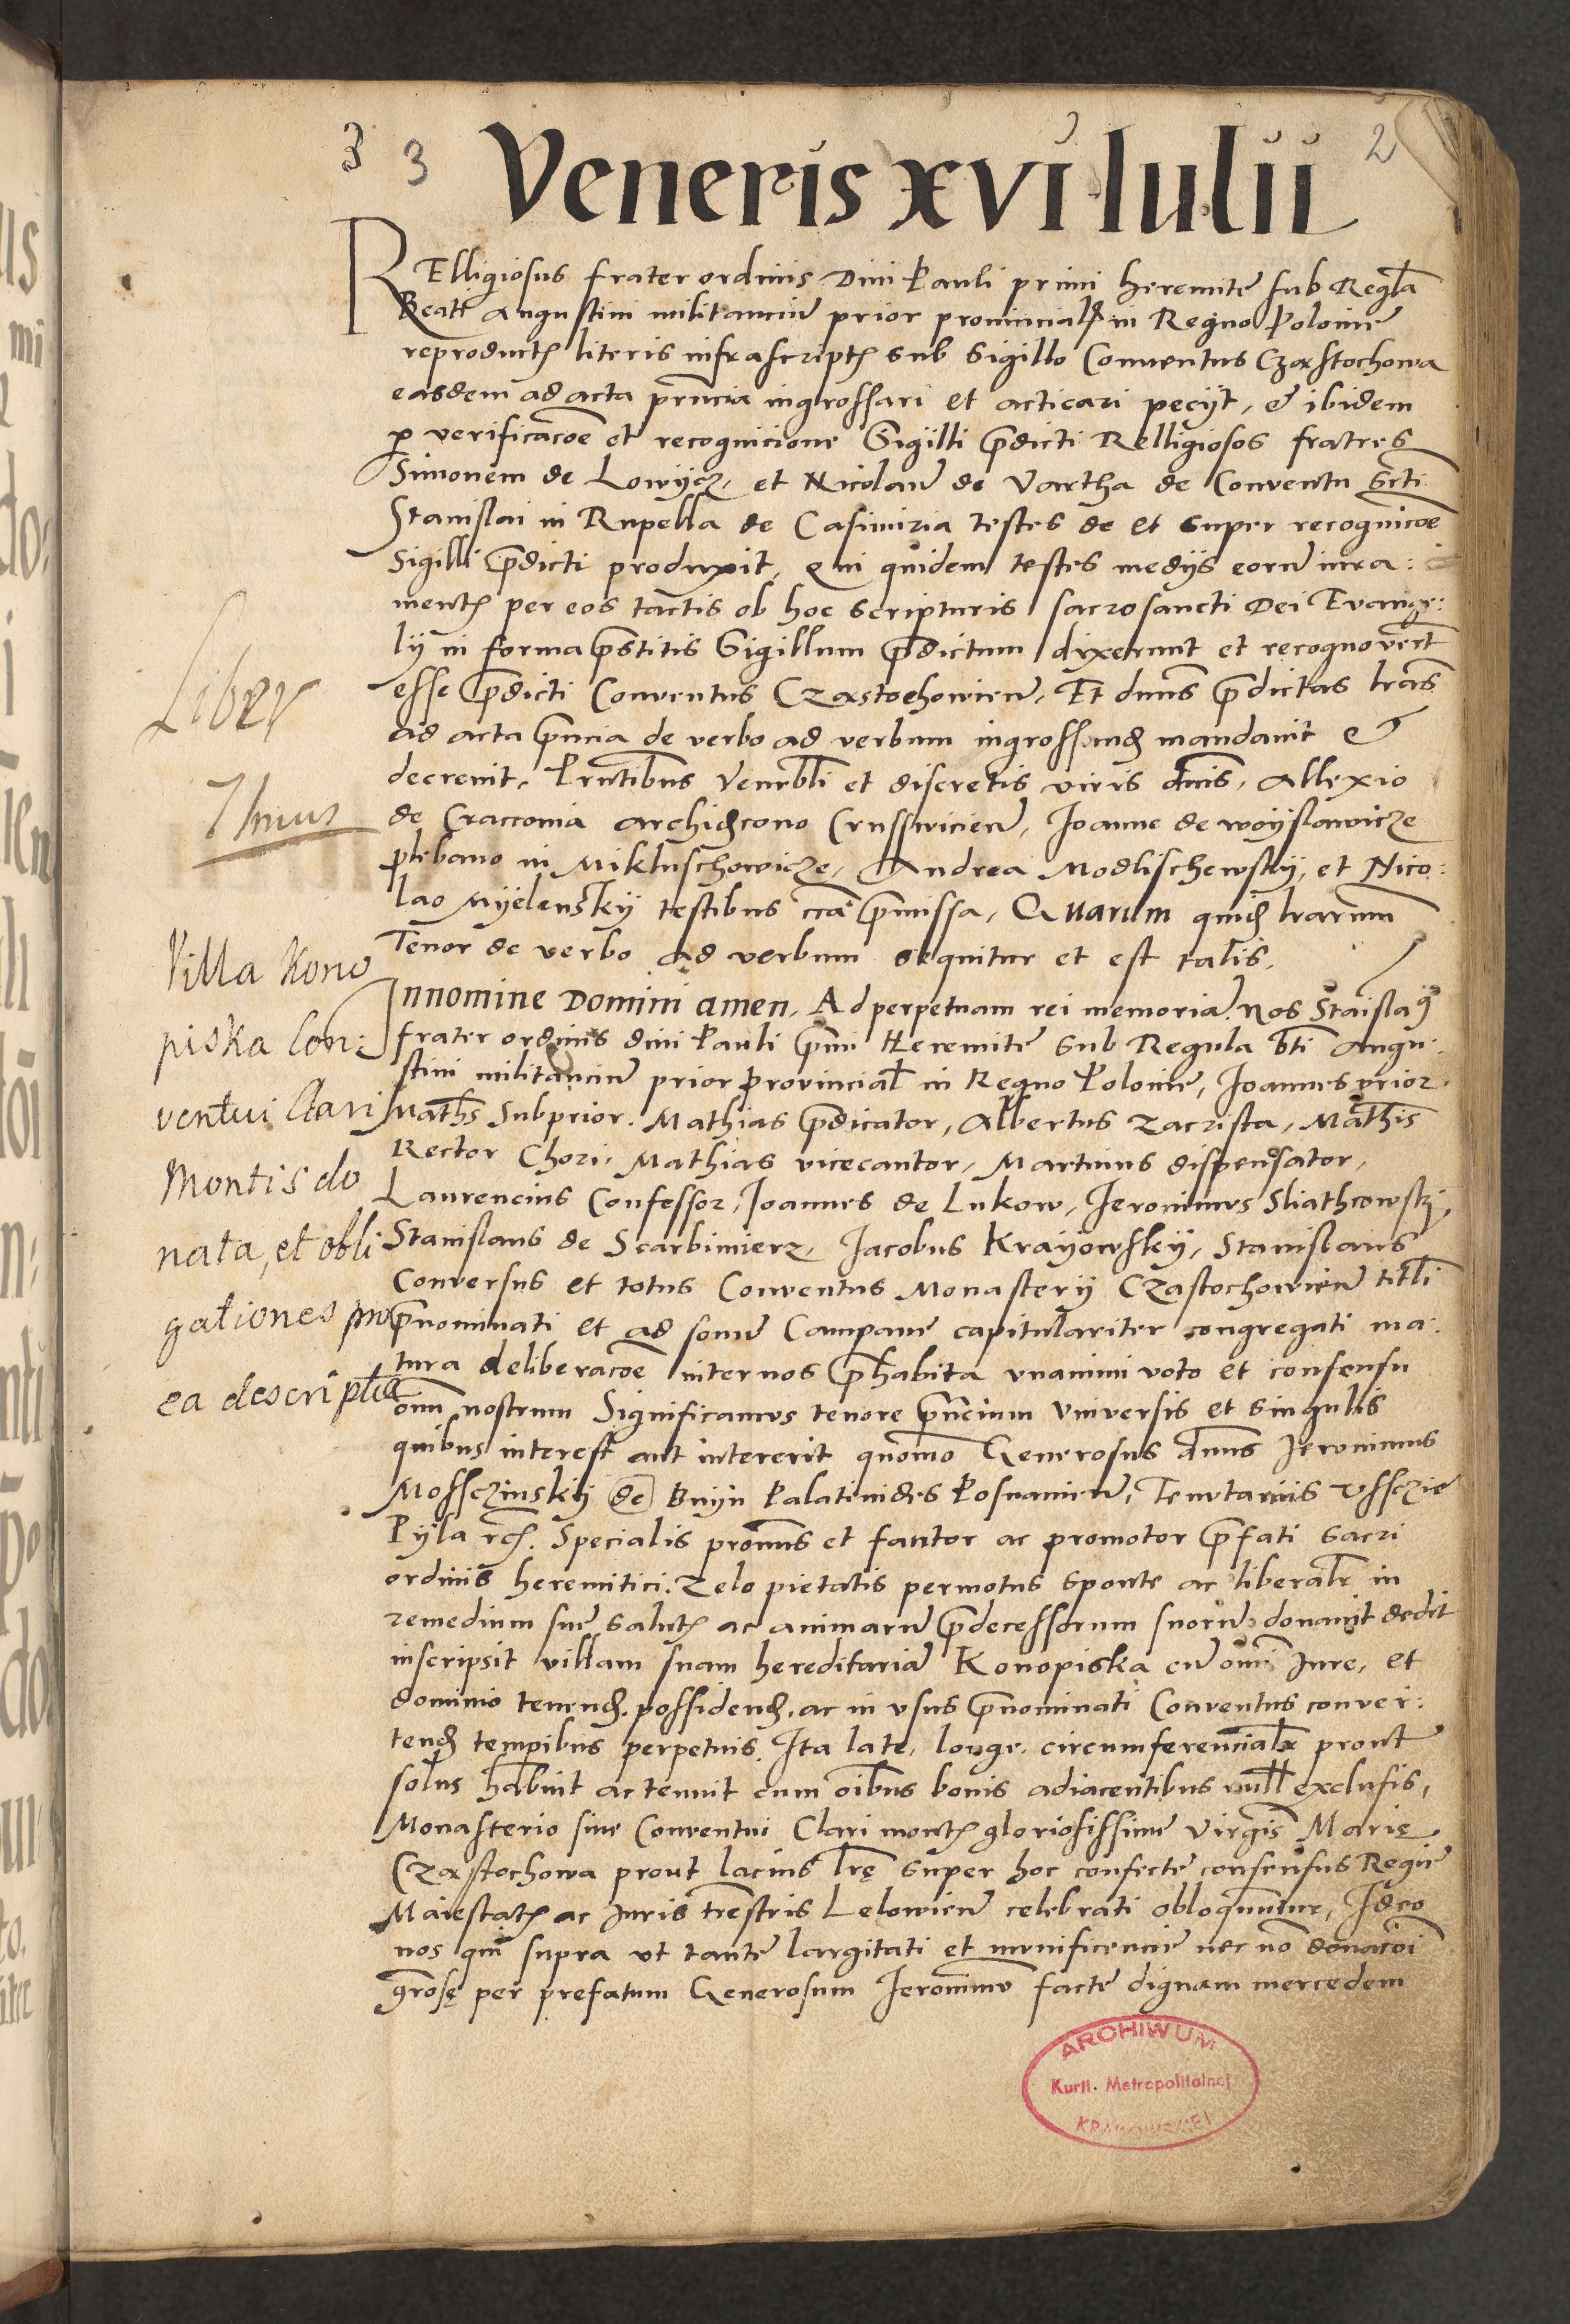 3 3 Veneris xvi Iulii 2
RElligiosus frater ordinis Divi Pauli primi heremite sub Regla
Beati Augustini militanciu prior provincialis in Regno Polonie
reproductis literis infrascriptis sub Sigillo Conventus Czastochowa
easdem ad acta prncia ingrossari et acticari pecijt, & ibidem
p verificacoe et recognicione Sigilli prdicti Relligiosos fratres
Simonem de Lowijcz, et Nicolau de Vartha de Conventu Scti
Stanislai in Rupella de Casimiria testes de et super recognicoe
Sigilli prdicti produxit, Qui quidem testes medijs eoru iura:
mentis per eos tactis ob hoc scripturis sacrosancti Dei Evange:
lij in forma prstitis Sigillum prdictum dixerunt et recognovert
esse prdicti Conventus Czastochowien, Et dnus prdictas lras
ad acta prncia de verbo ad verbum ingrossand mandavit &
decrevit, Prntibus Venerbli et discretis viris dnis, Allexio
de Cracovia archidcono Crusswicien, Joanne de woyslawicze
plebano in Mikluschowicze, Andrea Modlischewskij, et Nico:
lao Myelenskij testibus cca prmissa, Quarum quid lrarum
Tenor de verbo ad verbum sequitur et est talis,
Liber
Imus
Villa Kono
piska Con:
ventui Clari
Montis do
nata, et obli
gationes
ea descripta
Innomine Domini amen, Ad perpetuam rei memoria. Nos Staislaus
frater ordinis divi Pauli prmi Heremite sub Regula bti Augu:
stini militanciu prior provincial in Regno Polonie, Joannes prior
Maths Subprior. Mathias prdicator, Albertus zacrista, Mathis
Rector Chori. Mathias vicecantor, Martinus dispensator,
Laurencius Confessor, Joannes de Lukow, Jeronimus Sliathcowski,
Stanislaus de Scarbimierz, Jacobus Krayowskij, Stanislaus
Conversus et totus Conventus Monasterij Czastochowien titli
prnominati et ad sonu Campane capitulariter congregati ma:
tura deliberacoe internos prhabita unanimi voto et consensu
oim nostrum Significamus tenore prncium Universis et singulis
quibus interest aut intererit quomo Generosus dnus Jeronimus
Mossczinskij de Bnyn Palatinides Posnanien, Tenutarius Vssczie
Pyla rc. Specialis promus et fautor ac promotor prfati sacri
ordinis heremitici. Zelo pietatis permotus sponte ac liberalr in
remedium sue salutis ac animaru prdecessorum suoru donavit dedit
inscripsit villam suam hereditaria Konopiska cu omi Jure, et
dominio tenend. possidend. ac in usus prnominati Conventus conver:
tend tempibus perpetuis. Ita late, longe, circumferencialr prout
solus habuit ac tenuit cum oibus bonis adiacentibus null exclusis,
Monasterio sive Conventui Clari montis gloriosissime Virgis Marie
Czastochowa prout lacius lre super hoc confecte consensus Regie
Maiestatis ac Juris trestris Lelowien celebrati obloquuntur, Ideo
nos qui supra ut tante largitati et munificencie nec no donacoi
grose per prefatum Generosum Jeronimu facte dignam mercedem
ARCHIWUM
Kurii. Metropolitalnej
KRAKOWSKIEJ